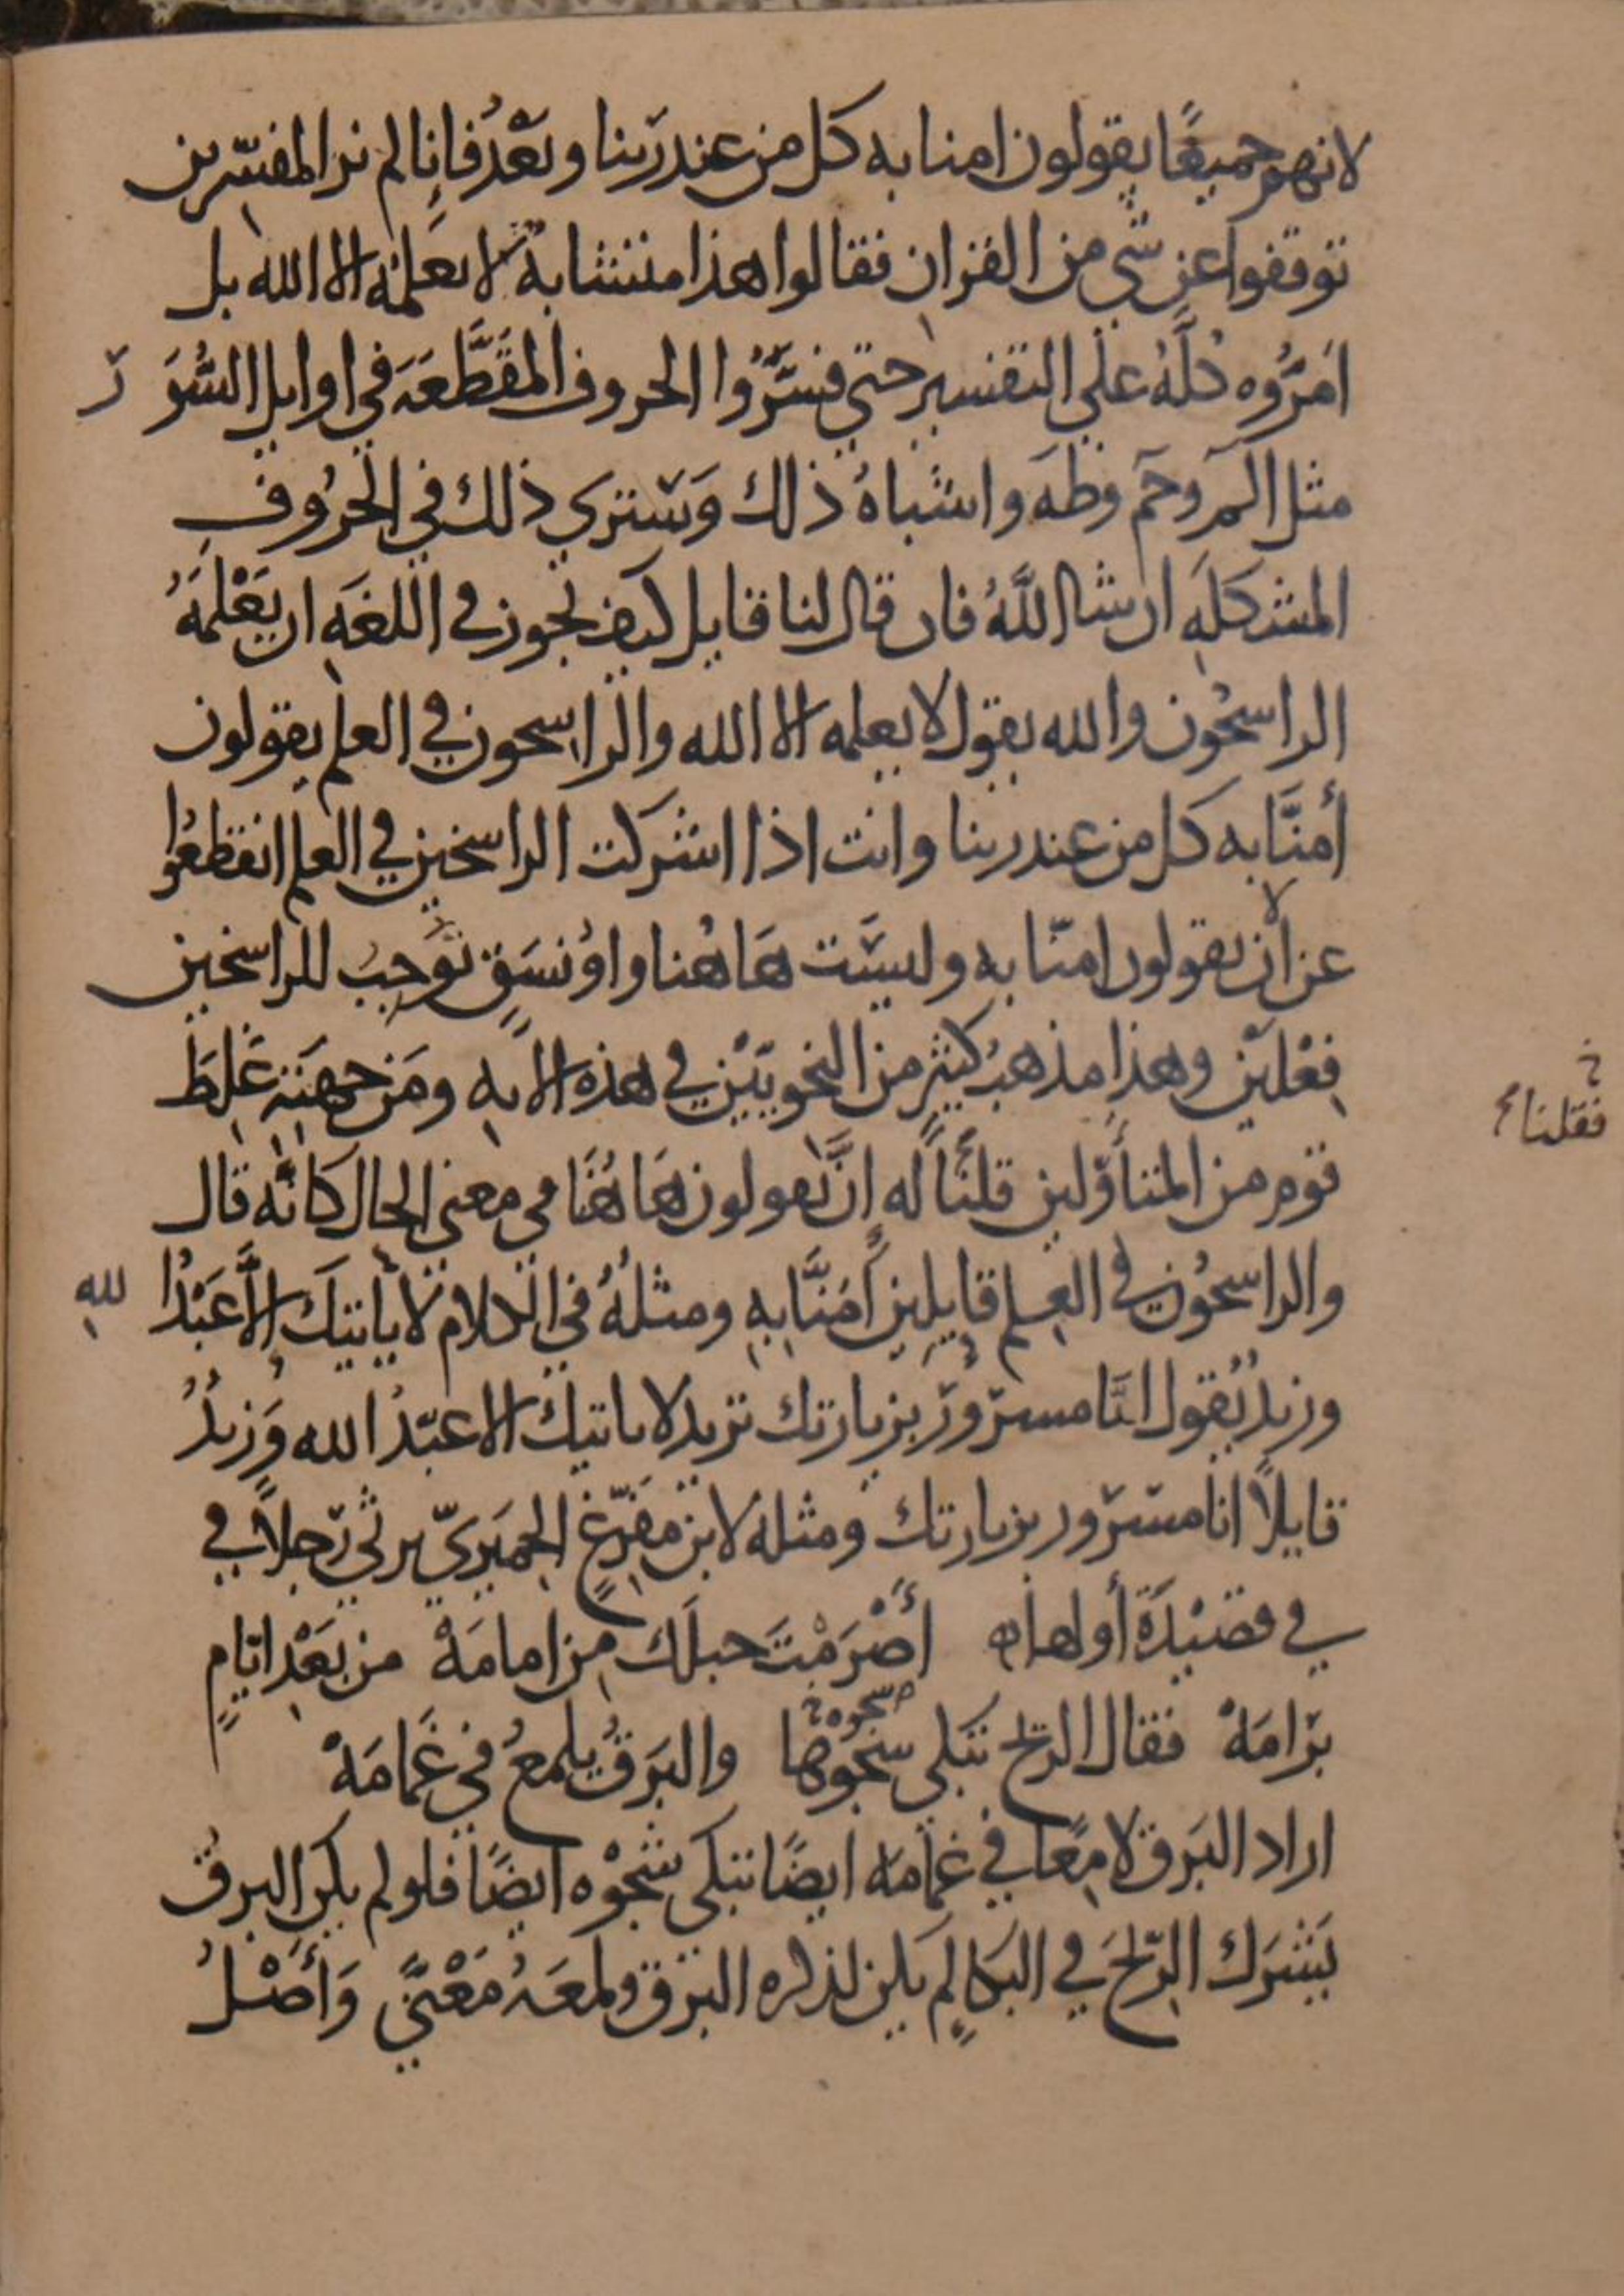 لانهم جميعًا يقولون امنا به كل من عند ربنا وبَعْدُ فإنا لم نر المفسّرين
توقفوا عن شي من القران فقالوا هذا متشابهٌ لا يعلمُه الا الله بل
امَرُّوه كُلَّهُ على التفسير حتى فسَّرُوا الحروف المُقَطَّعَه في اوايل السُّوَر
مثل الٓمر وحٓم وطٰهَ واشباهُ ذلك وَسَترى ذلك في الحُرُوفِ
المشكلَهِ ان شا اللَّهُ فان قال لنا قايل كيف يجوز في اللغَهِ ان يَعْلَمَهُ
الراسخُون والله يقول لا يعلمه الا الله والراسخون في العلم يقولون
أمنَّا به كل من عند ربنا وانت اذا اشركت الراسخين في العلم انقطعُوا
عن ان يقولون امنّا به وليسَت هَا هُنا واوُ نَسَقٍ تُوجِبُ للراسخين
فِعْلَيْن وهذا مذهبُ كثيرٍ من النحويّيْن في هذه الايهِ ومَن جهتِهِ غَلِطَ
قوم من المتأوّلين قلنَا له إنَّ يقولون هَا هُنَا في معنى الحال كانَّه قال
فقلنا خ
والراسخُون في العِلم قايلِين أمَنَّا بِهِ ومثلُهُ في الكلام لا يأتيكَ إلَّا عَبْدُ اللهِ
وزيدٌ يَقول انَا مسرُورٌ بزيارتك تريد لا ياتيك الا عبْدُ الله وَزيدٌ
قايلاً انا مسرُور بزيارتك ومثله لابن مفَرّغٍ الحِميَريّ يرثي رَجلاً في
في قصيْدَة أولها ه أَصَرَمْتَ حبلَك مِن امامَهْ من بَعْدِ ايّامٍ
برَامَهْ فقال الريح تبكي شجوَها والبَرقُ يلمعُ في غَمَامَهْ
شجوه خ
اراد البَرق لامِعًا في غمامه ايضًا تبكي شجْوه ايضًا فلو لم يكن البرقُ
يَشرَك الرّيحَ في البكا لم يكن لذكره البَرق ولمعَهُ مَعْنًى وَأَصْلُ